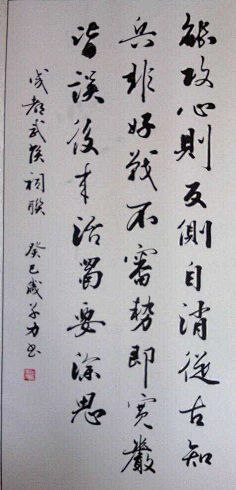 能攻心則反側自消從古知
兵非好戰不審勢即寬嚴
皆誤後來治蜀要深思
成都武侯祠聯 癸巳歲学力书